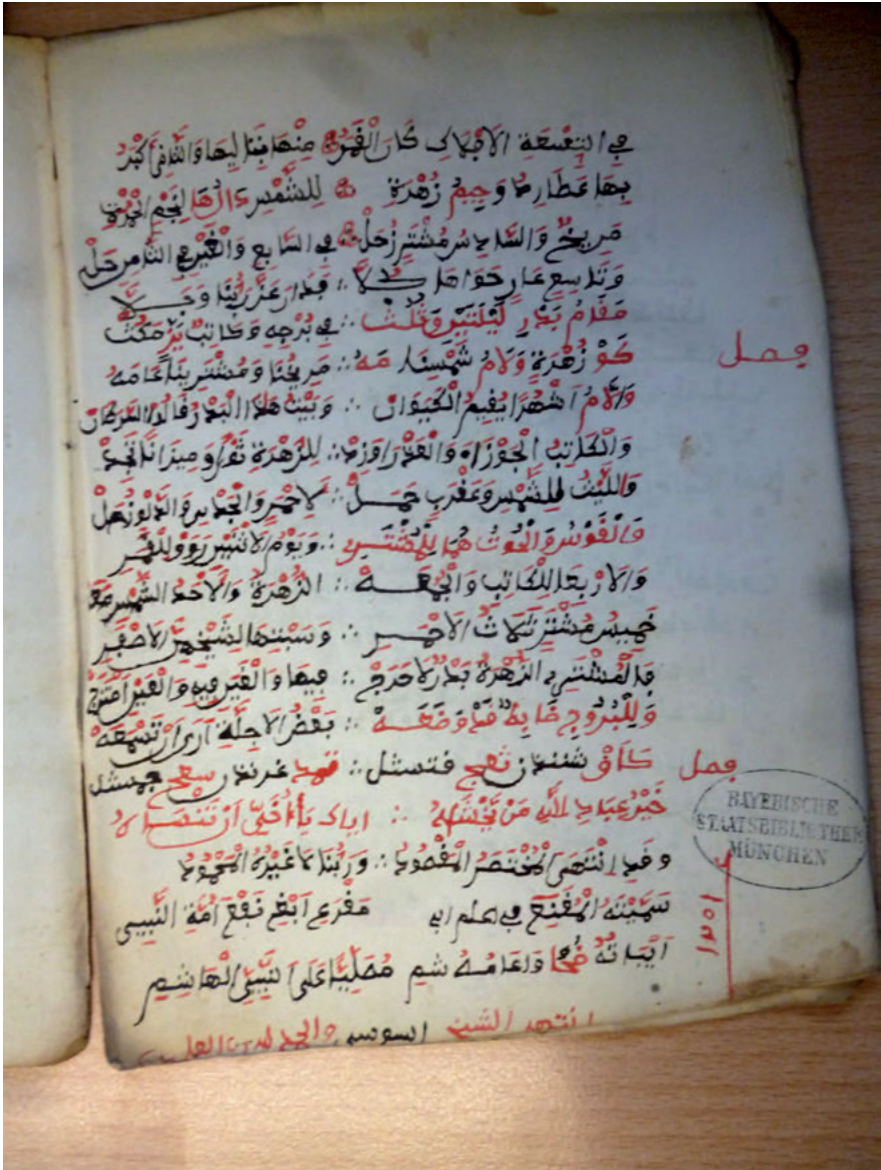 في التسعة الأفلاك كان القمر منها بنا ليها والثاني أكبر
بها عطارد وجيم زهرة للشمس دال ها لنجم الحمرة
مريخ والسادس مشتر زحل في السابع والغير في الثامن حل
وتاسع عار حواها كلا فدار عز ربنا وجلا
مقام بدر ليلتين وثلث في برجه وكاتب يز مكث
فصل
كو زهرة ولام شمسنا مه مريخنا ومشترينا عامه
ولام أشهرا يقيم الكيوان وبيت هذا البدر قالوا السرطان
والكاتب الجوزاء والعذرا وزد للزهرة ثورا وميزانا تجد
والليث للشمس وعقرب حمل لاحمر والجدي والدلو زحل
والقوس والحوت هما للمشتري ويوم الاثنين رووا للقمر
والاربعا للكاتب والجمعه الزهرة والأحد الشمس معه
خميس مشتر ثلاث الأحمر وسبتها لشيخهن الأصفر
فالمشتري الزهرة بدر لا حرج فيها والغير فيه والغير امتزج
وللبروج ضابط قد وضعه بعض الاجلة أرى أن تسمعه
فصل
خير عباد الله من يخشاه اياك يا أخي أن تنساه
وقد انتهى المختصر المقصود وربنا لا غيره المحمود
سميته المقنع في علم أبي مقرع ابغ نفع أمة النبي
أبياته ضحا وعامه شم مصليا على النبي الهاشم
١٢٥١
BAYERISCHE
STAATSBIBLIOTHEK
MÜNCHEN